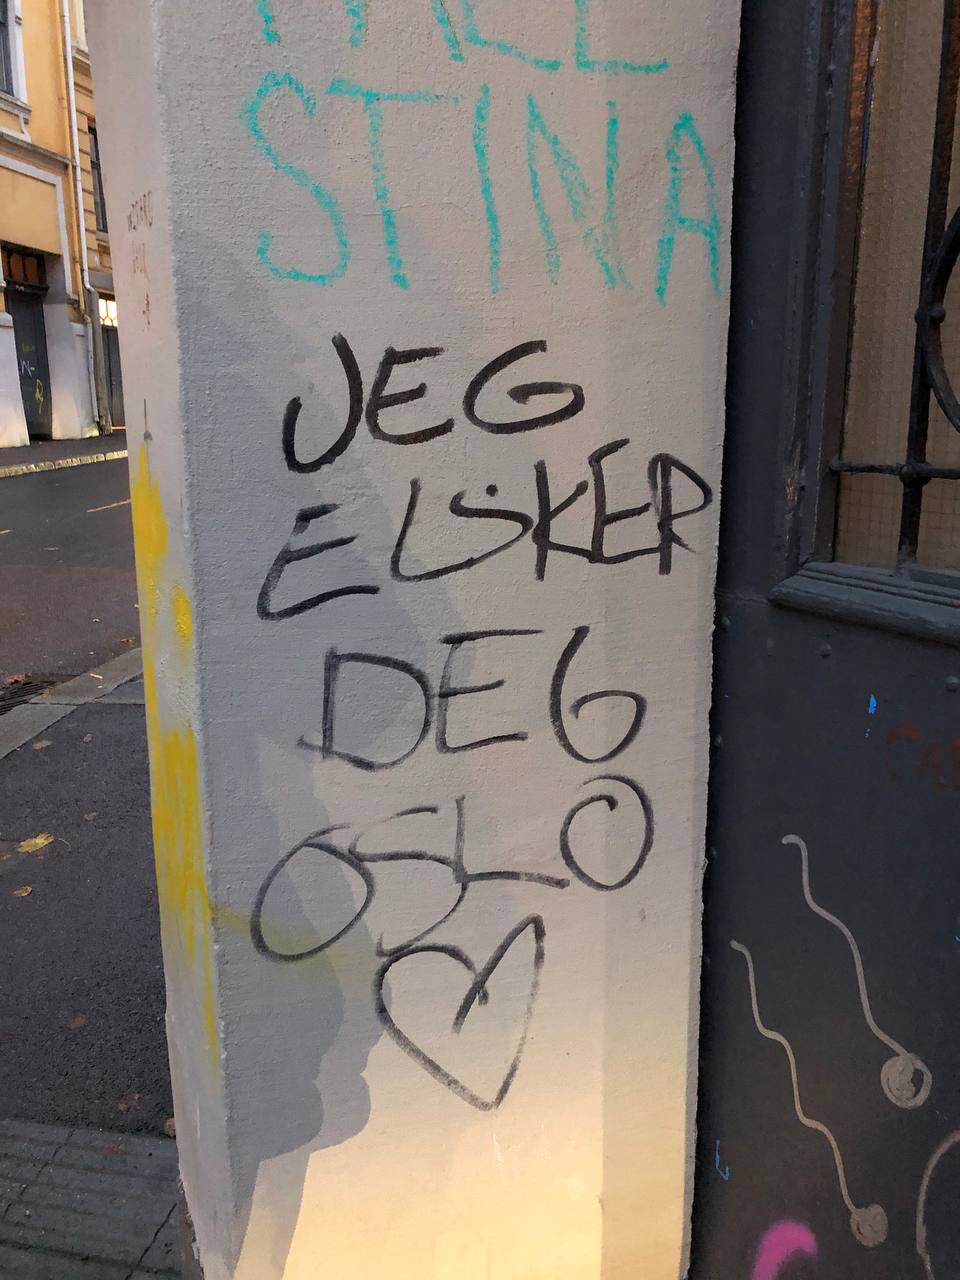 STINA
JEG
ELSKER
DEG
OSLO